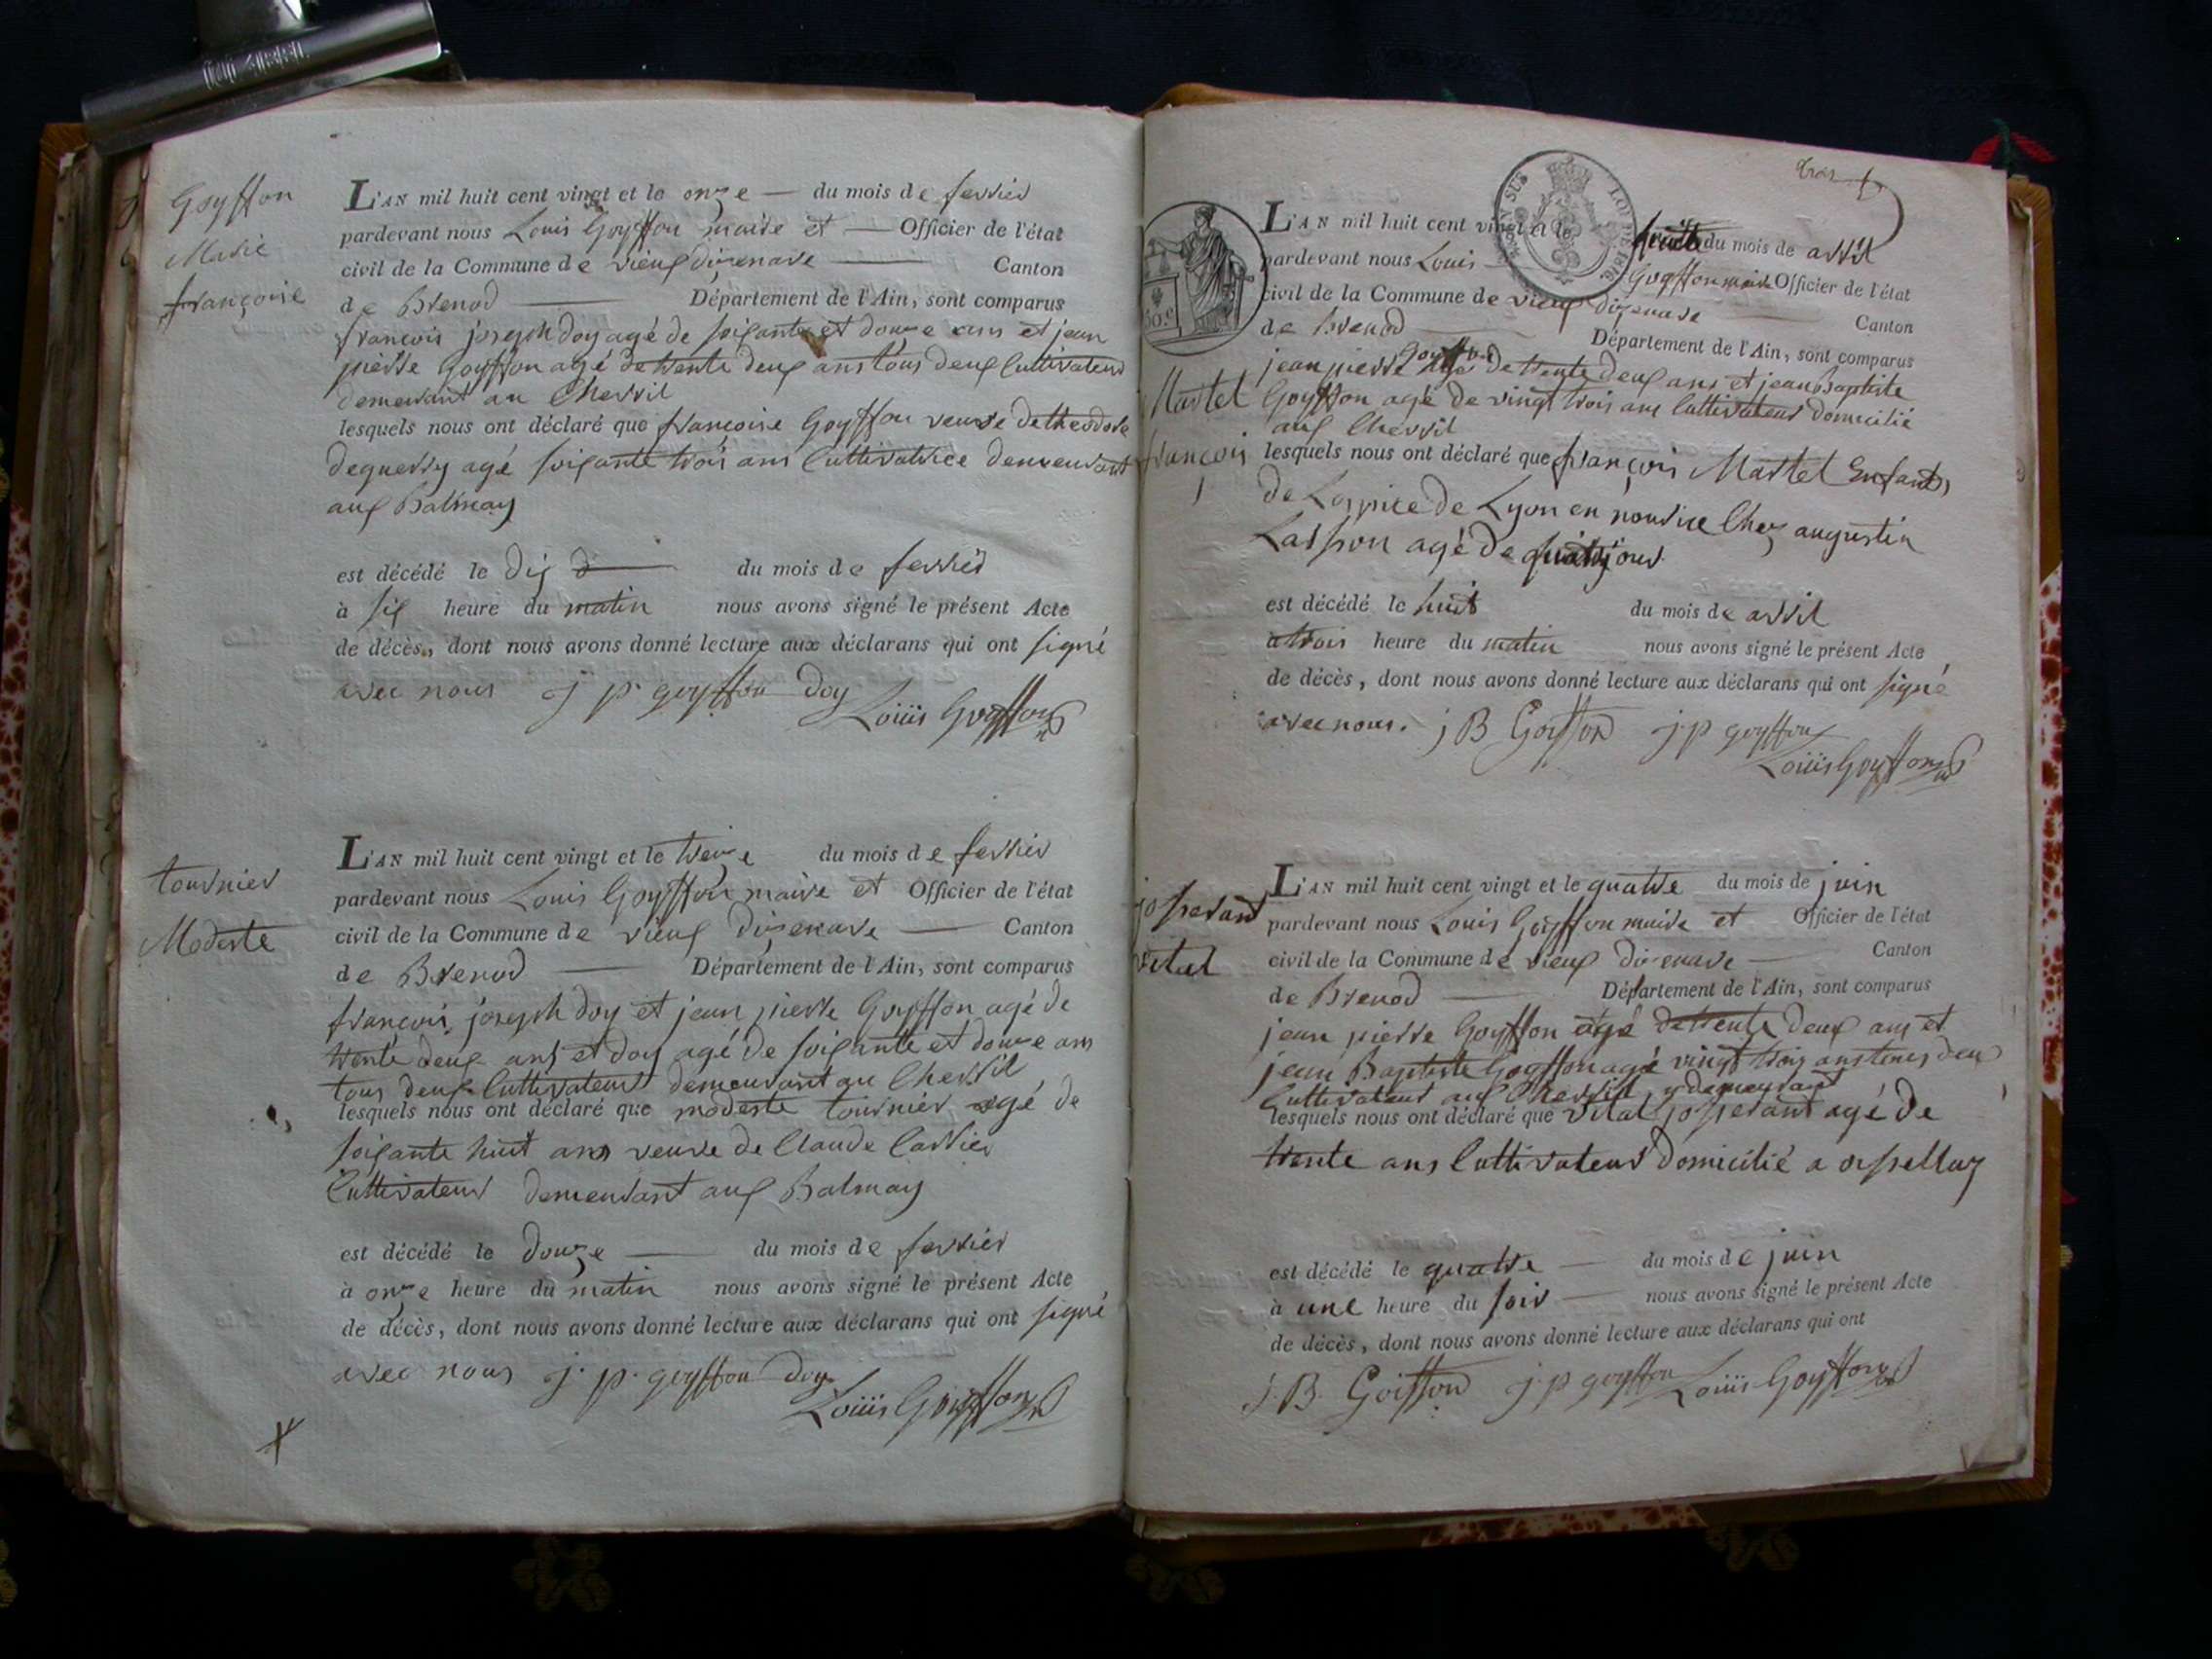 Goyffon
Marie
françoise
L'AN mil huit cent vingt et le onze du mois de fevrier
pardevant nous Louis Goyffon maire et Officier de l'état
civil de la Commune de vieux dizenave Canton
de Brenod Département de l'Ain, sont comparus
françois joseph doy agé de soixante et douze ans et jean
pierre Goyffon agé de trente deux ans tous deux Cultivateur
demeurant au Chevril
lesquels nous ont déclaré que francoise Goyffon veuve de theodore
deguerry agé soixante trois ans Cultivatrice demeurant
aux Balmay
est décédé le dix du mois de fevrier
à six heure du matin nous avons signé le présent Acte
de décès, dont nous avons donné lecture aux déclarans qui ont signé
avec nous j. p. goyffon doy
Louis Goyffon
tournier
Modeste
L'AN mil huit cent vingt et le treize du mois de fevrier
pardevant nous Louis Goyffon maire et Officier de l'état
civil de la Commune de vieux dizenave Canton
de Brenod Département de l'Ain, sont comparus
francois joseph doy et jean pierre Goyffon agé de
trente deux ans et doy agé de soixante et douze ans
tous deux Cultivateur demeurant au Chevril
lesquels nous ont déclaré que modeste tournier agé de
soixante huit ans veuve de Claude Carrier
Cultivateur demeurant aux Balmay
est décédé le douze du mois de fevrier
à onze heure du matin nous avons signé le présent Acte
de décès, dont nous avons donné lecture aux déclarans qui ont signé
avec nous j. p. goyffon doy
Louis Goyffon
LOI DE 1816
50.c
L'AN mil huit cent vingt et le huit du mois de avril
pardevant nous Louis Goyffon maire Officier de l'état
civil de la Commune de vieux dizenave Canton
de Brenod Département de l'Ain, sont comparus
jean pierre Goyffon agé de trente deux ans et jean Baptiste
Goyffon agé de vingt trois ans Cultivateur domicilié
aux Chevril
Martel
françois
lesquels nous ont déclaré que françois Martel Enfants
de Lospice de Lyon en nourice Chez augustin
agé de jours
est décédé le huit du mois de avril
a trois heure du matin nous avons signé le présent Acte
de décès, dont nous avons donné lecture aux déclarans qui ont signé
avec nous. j B Goiffon j. p goyffon
Louis Goyffon
josserant
vital
L'AN mil huit cent vingt et le quatre du mois de juin
pardevant nous Louis Goyffon maire et Officier de l'état
civil de la Commune de vieux dizenave Canton
de Brenod Département de l'Ain, sont comparus
jean pierre Goyffon agé de trente deux ans et
jean Baptiste Goyffon agé vingt trois ans tous deux
Cultivateur aux Chevril y demeurant
lesquels nous ont déclaré que vital josserant agé de
trente ans Cultivateur domicilié a ossellaz
est décédé le quatre du mois de juin
à une heure du soir nous avons signé le présent Acte
de décès, dont nous avons donné lecture aux déclarans qui ont
J. B. Goiffon j. p goyffon Louis Goyffon